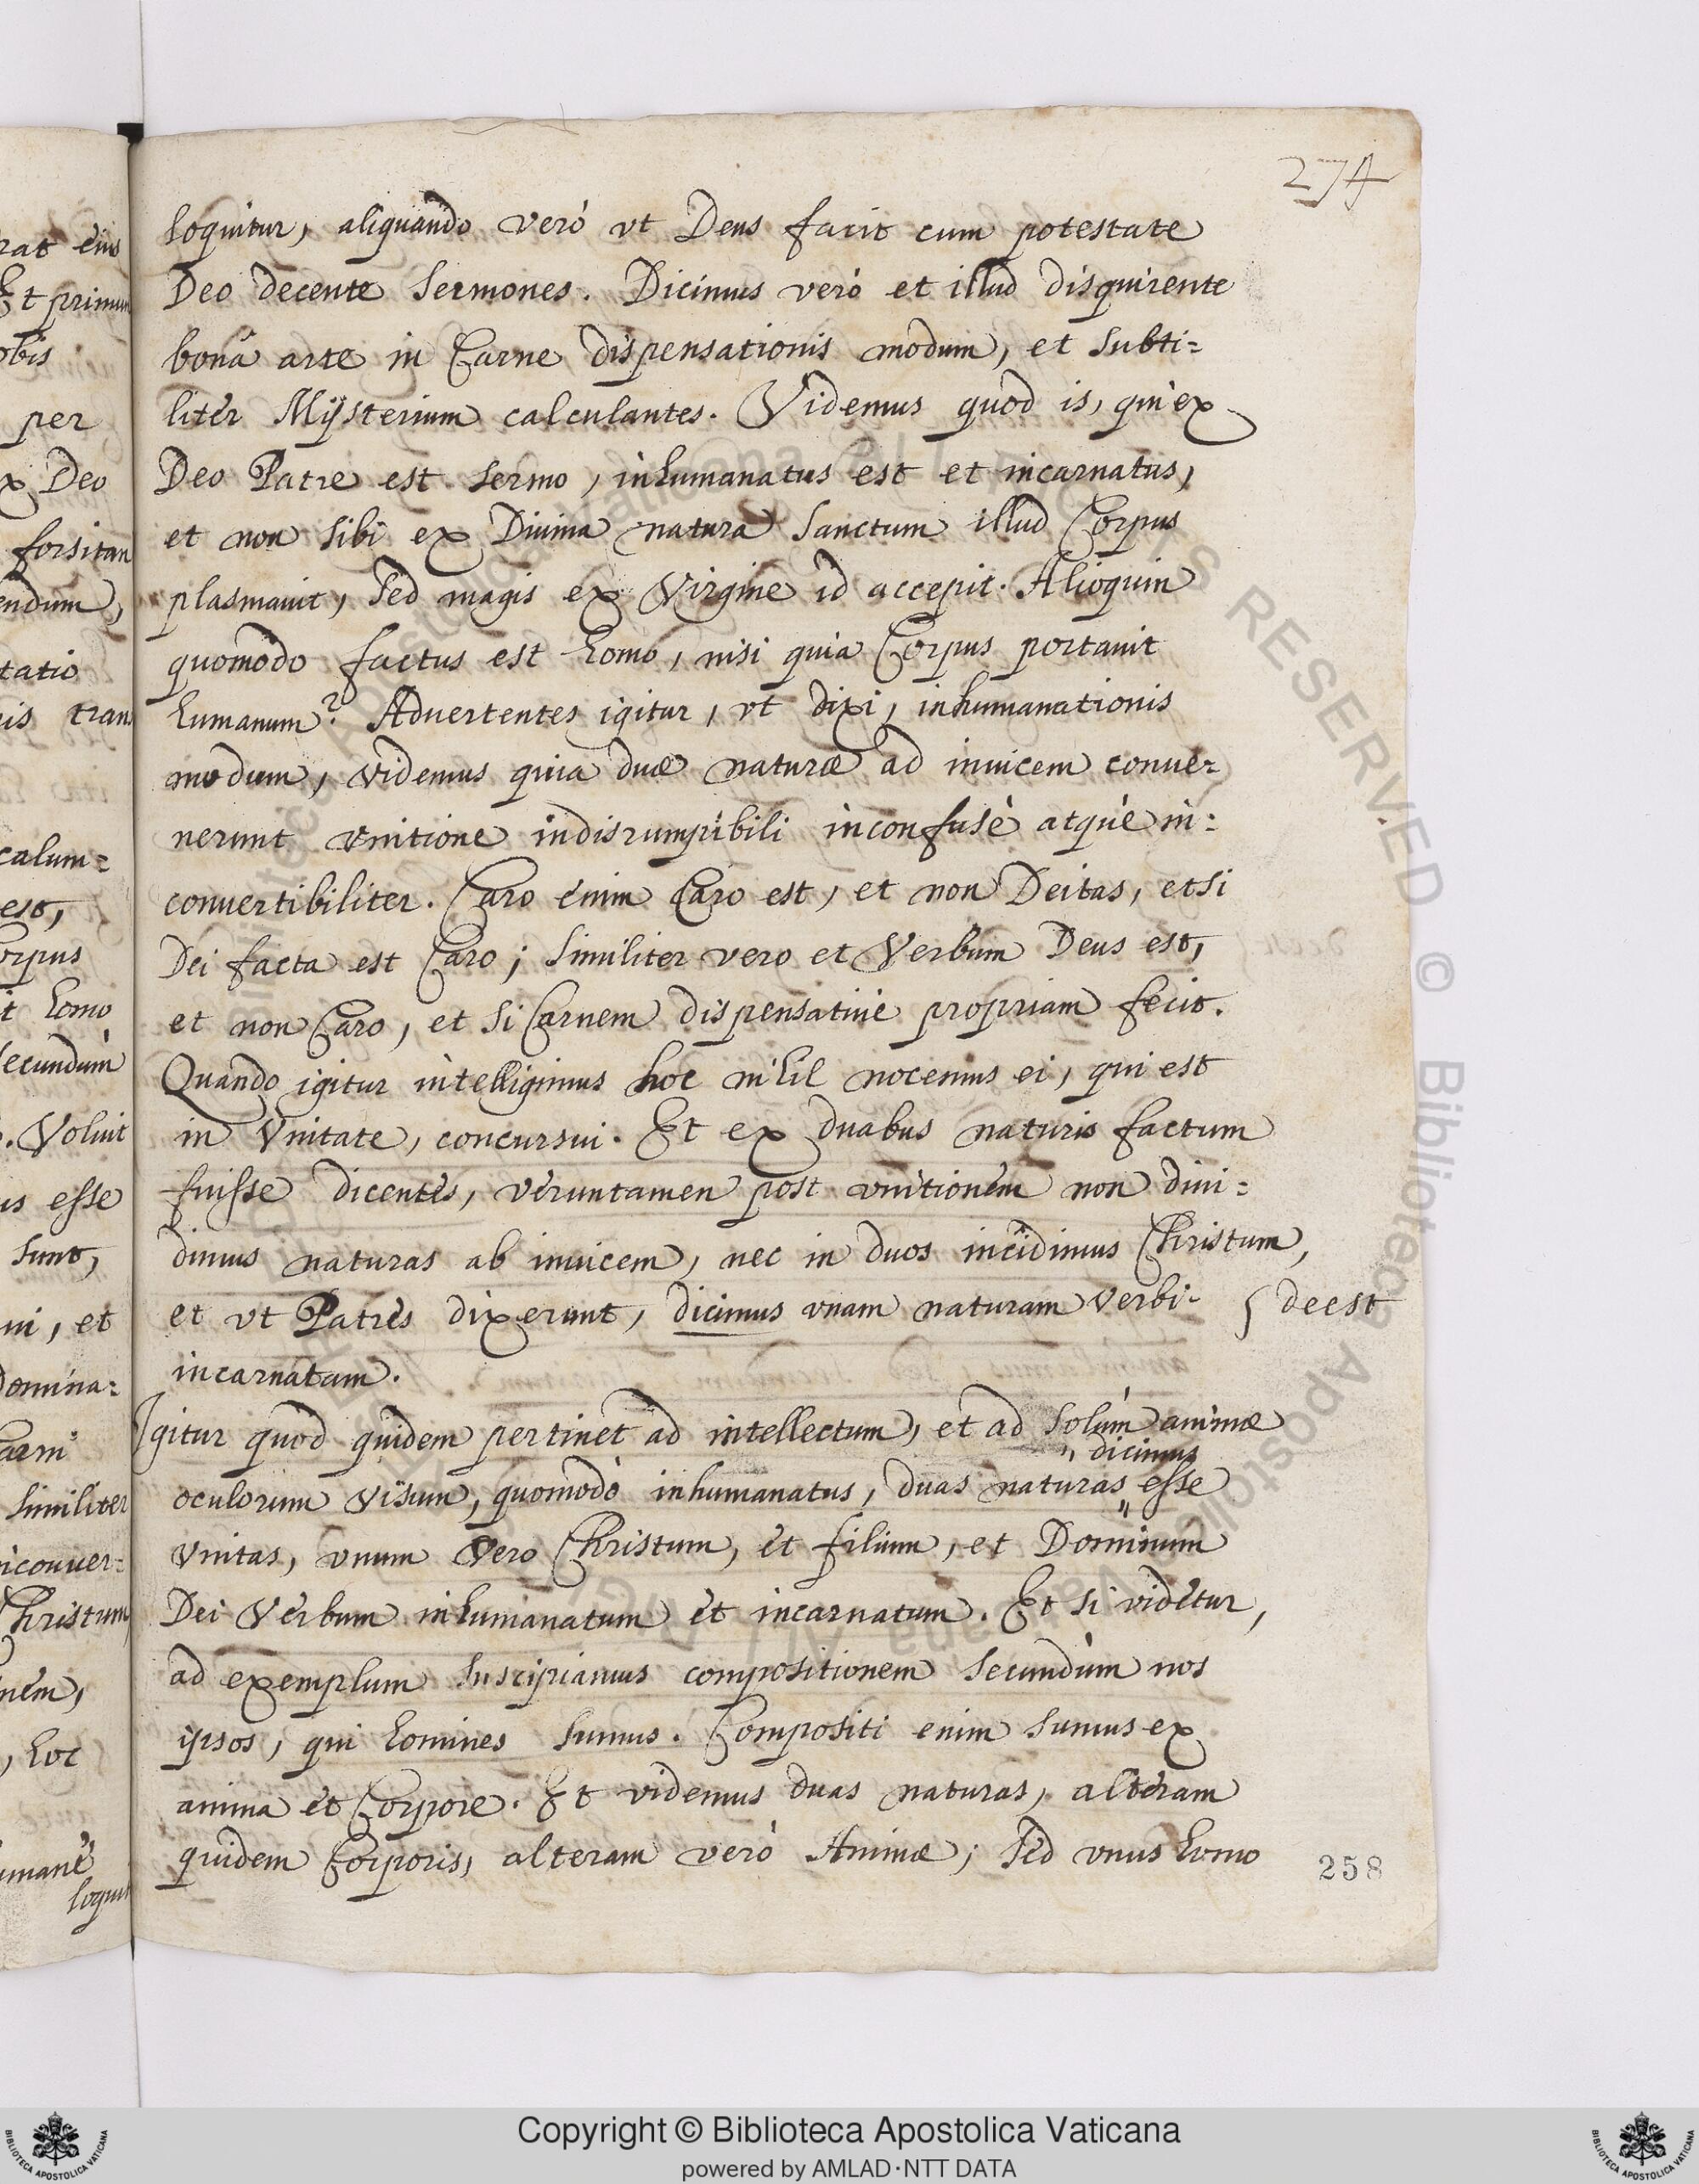 274
loquitur, aliquando verò vt Deus facit cum potestate
Deo decente sermones. Dicimus verò et illud disquirente
bonâ arte in Carne dispensationis modum, et subti=
liter Mÿsterium calculantes. Videmus quod is, qui ex
Deo Patre est sermo, inhumanatus est et incarnatus,
et non sibi ex Diuina natura Sanctum illud Corpus
plasmauit, sed magis ex Virgine id accepit. Alioquin
quomodo factus est homo, nisi quia Corpus portauit
humanum? Aduertentes igitur, vt dixi, inhumanationis
modum, videmus quia duæ naturæ ad inuicem conue=
nerunt vnitione indisrumpibili inconfusè atque in=
conuertibiliter. Caro enim Caro est, et non Deitas, etsi
Dei facta est Caro; similiter vero et Verbum Deus est,
et non Caro, et si Carnem dispensatiue propriam fecit.
Quando igitur intelligimus hoc nihil nocemus ei, qui est
in Vnitate, concursui. Et ex duabus naturis factum
fuisse dicentes, veruntamen post vnitionem non diui=
dimus naturas ab inuicem, nec in duos incidimus Christum,
et vt Patres dixerunt, dicimus vnam naturam Verbi- { deest
incarnatam.
Igitur quod quidem pertinet ad intellectum, et ad solùm animæ
,, dicimus
oculorum visum, quomodò inhumanatus, duas naturas ,, esse
vnitas, vnum vero Christum, et filium, et Dominum
Dei Verbum inhumanatum et incarnatum. Et si videtur,
ad exemplum suscipiamus compositionem secundùm nos
ipsos, qui homines sumus. Compositi enim sumus ex
anima et Corpore. Et videmus duas naturas, alteram
quidem Corporis, alteram verò Animæ; sed vnus homo
258
rat eius
Et primum
obis
per
ex Deo
forsitan
endum,
tatio
ris trans
calum=
est,
orpus
it homo
secundùm
. Voluit
us esse
sunt,
ni, et
Domina=
similiter
nconuer=
Christum
nem,
, hoc
umanè
loquit
Copyright © Biblioteca Apostolica Vaticana
powered by AMLAD·NTT DATA
BIBLIOTECA APOSTOLICA VATICANA
BIBLIOTECA APOSTOLICA VATICANA